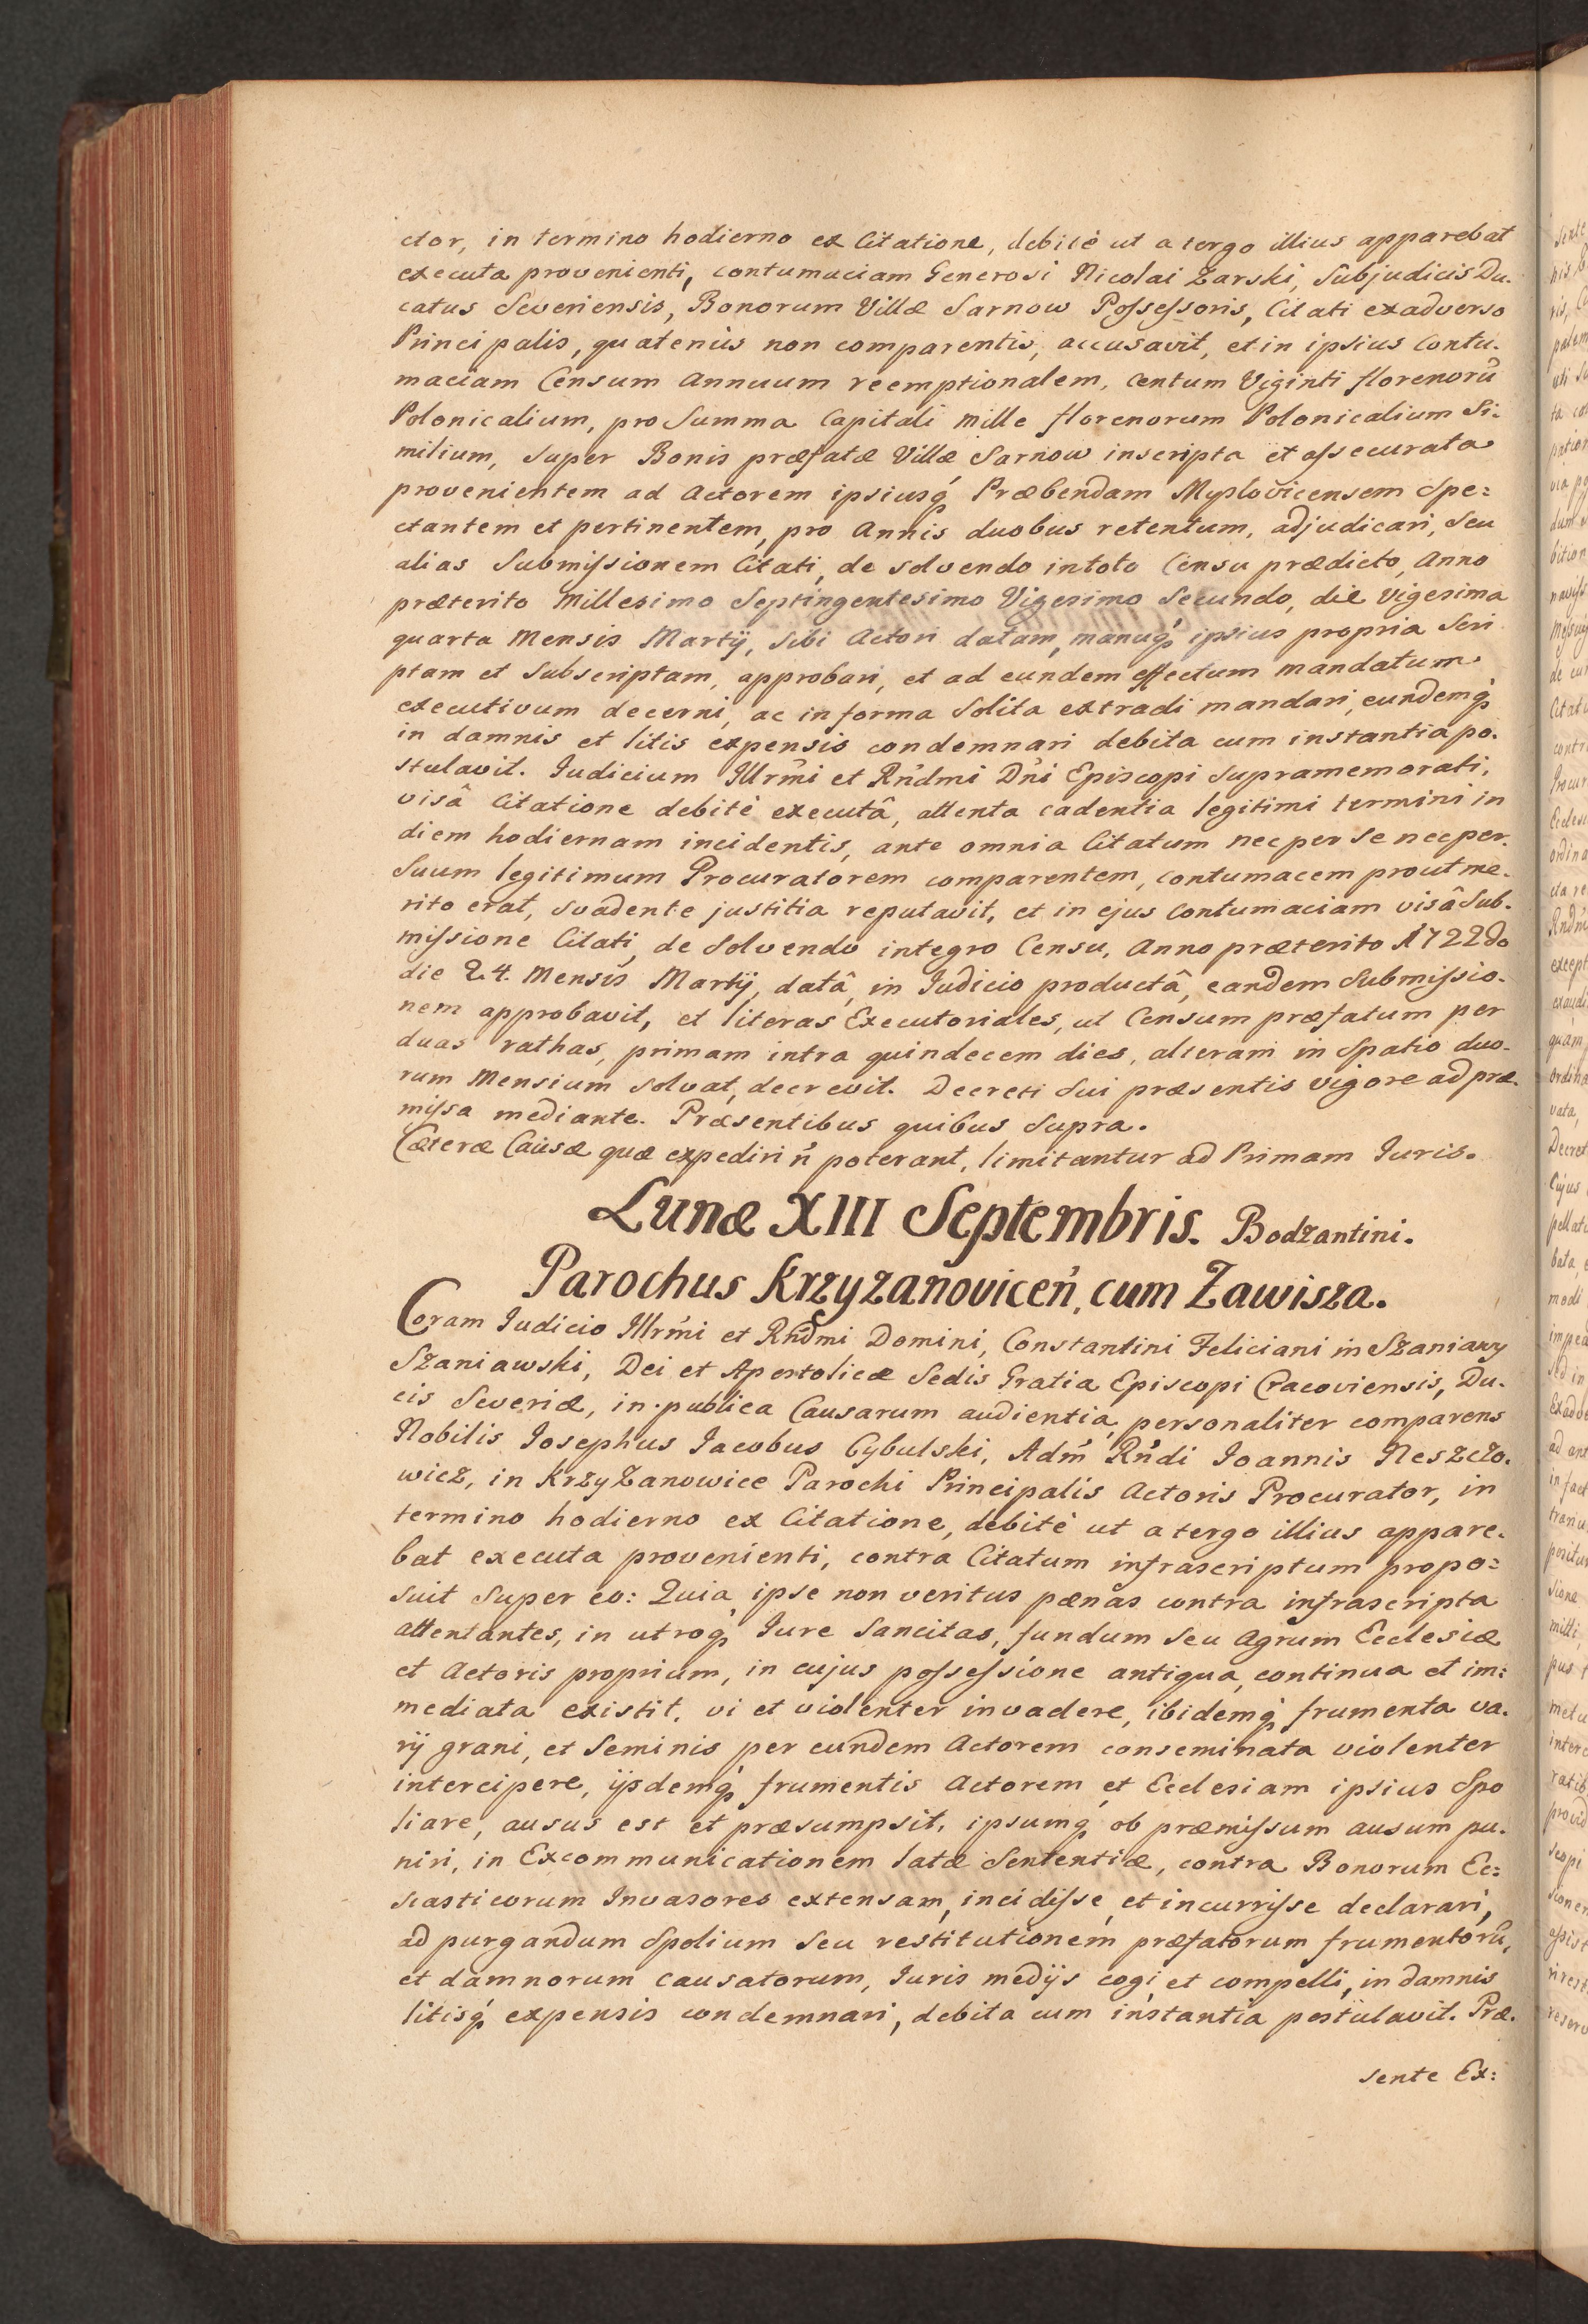 ctor, in termino hodierno ex Citatione, debitè ut a tergo illius apparebat
executa provenienti, contumaciam Generosi Nicolai Zarski, Subjudicis Du-
catus Severiensis, Bonorum Villæ Sarnow Possessoris, Citati ex adverso
Principalis, quatenùs non comparentis, accusavit, et in ipsius Contu-
maciam Censum Annuum reemptionalem, Centum Viginti florenorū
Polonicalium, pro Summa Capitali Mille florenorum Polonicalium Si-
milium, Super Bonis præfatæ Villæ Sarnow inscripta et assecurata
provenientem ad Actorem ipsiusq́ Præbendam Myslovicensem Spe=
ctantem et pertinentem, pro Annis duobus retentum, adjudicari, Seu
alias Submissionem Citati, de solvendo in toto Censu prædicto, Anno
præterito Millesimo Septingentesimo Vigesimo Secundo, die Vigesima
quarta Mensis Martÿ, Sibi Actori datam, manuq́ ipsius propria Scri
ptam et Subscriptam, approbari, et ad eundem effectum mandatum
executivum decerni, ac in forma Solita extradi mandari, eundemq́
in damnis et litis expensis condemnari debita cum instantia po-
stulavit. Iudicium Illrm̄i et Rn̄dmi Dn̄i Episcopi Supramemorati,
visâ Citatione debitè executâ, attenta cadentia legitimi termini in
diem hodiernam incidentis, ante omnia Citatum nec per se nec per
Suum legitimum Procuratorem comparentem, contumacem prout me-
rito erat, svadente justitia reputavit, et in ejus Contumaciam visâ Sub-
missione Citati, de Solvendo integro Censu, Anno præterito 1722do
die 24. Mensis Martÿ, datâ, in Iudicio productâ, eandem Submissio-
nem approbavit, et literas Executoriales, ut Censum præfatum per
duas rathas, primam intra quindecem dies, alteram in Spatio duo-
rum Mensium solvat, decrevit. Decreti Sui præsentis vigore ad præ-
missa mediante. Præsentibus quibus Supra.
Cæteræ Causæ quæ expediri ń poterant, limitantur ad Primam Iuris.
Lunæ XIII Septembris. Bodzantini.
Parochus Krzyzanoviceń, cum Zawisza.
Coram Iudicio Illrm̄i et Rn̄dmi Domini, Constantini Feliciani in Szaniawy
Szaniawski, Dei et Apostolicæ Sedis Gratia Episcopi Cracoviensis, Du-
cis Severiæ, in publica Causarum audientia, personaliter comparens
Nobilis Iosephus Iacobus Cybulski, Adm̄ Rn̄di Ioannis Neszczo-
wicz, in KrzyZanowice Parochi Principalis Actoris Procurator, in
termino hodierno ex Citatione, debitè ut a tergo illius appare-
bat executa provenienti, contra Citatum infrascriptum propo=
suit Super eo: Quia ipse non veritus pœnas contra infrascripta
attentantes, in utroq́ Iure Sancitas, fundum Seu Agrum Ecclesiæ
et Actoris proprium, in cujus possessione antiqua, continua et im=
mediata existit, vi et violenter invadere, ibidemq́ frumenta va-
rÿ grani, et Seminis per eundem Actorem conseminata violenter
intercipere, ÿsdemq́ frumentis Actorem et Ecclesiam ipsius Spo
liare, ausus est et præsumpsit, ipsumq́ ob præmissum ausum pu-
niri, in Excommunicationem latæ Sententiæ, contra Bonorum Ec=
siasticorum Invasores extensam, incidisse et incurrisse declarari,
ad purgandum Spolium Seu restitutionem præfatorum frumentorū,
et damnorum Causatorum, Iuris medÿs cogi et compelli, in damnis
litisq́ expensis condemnari, debita cum instantia postulavit. Præ-
sente Ex: